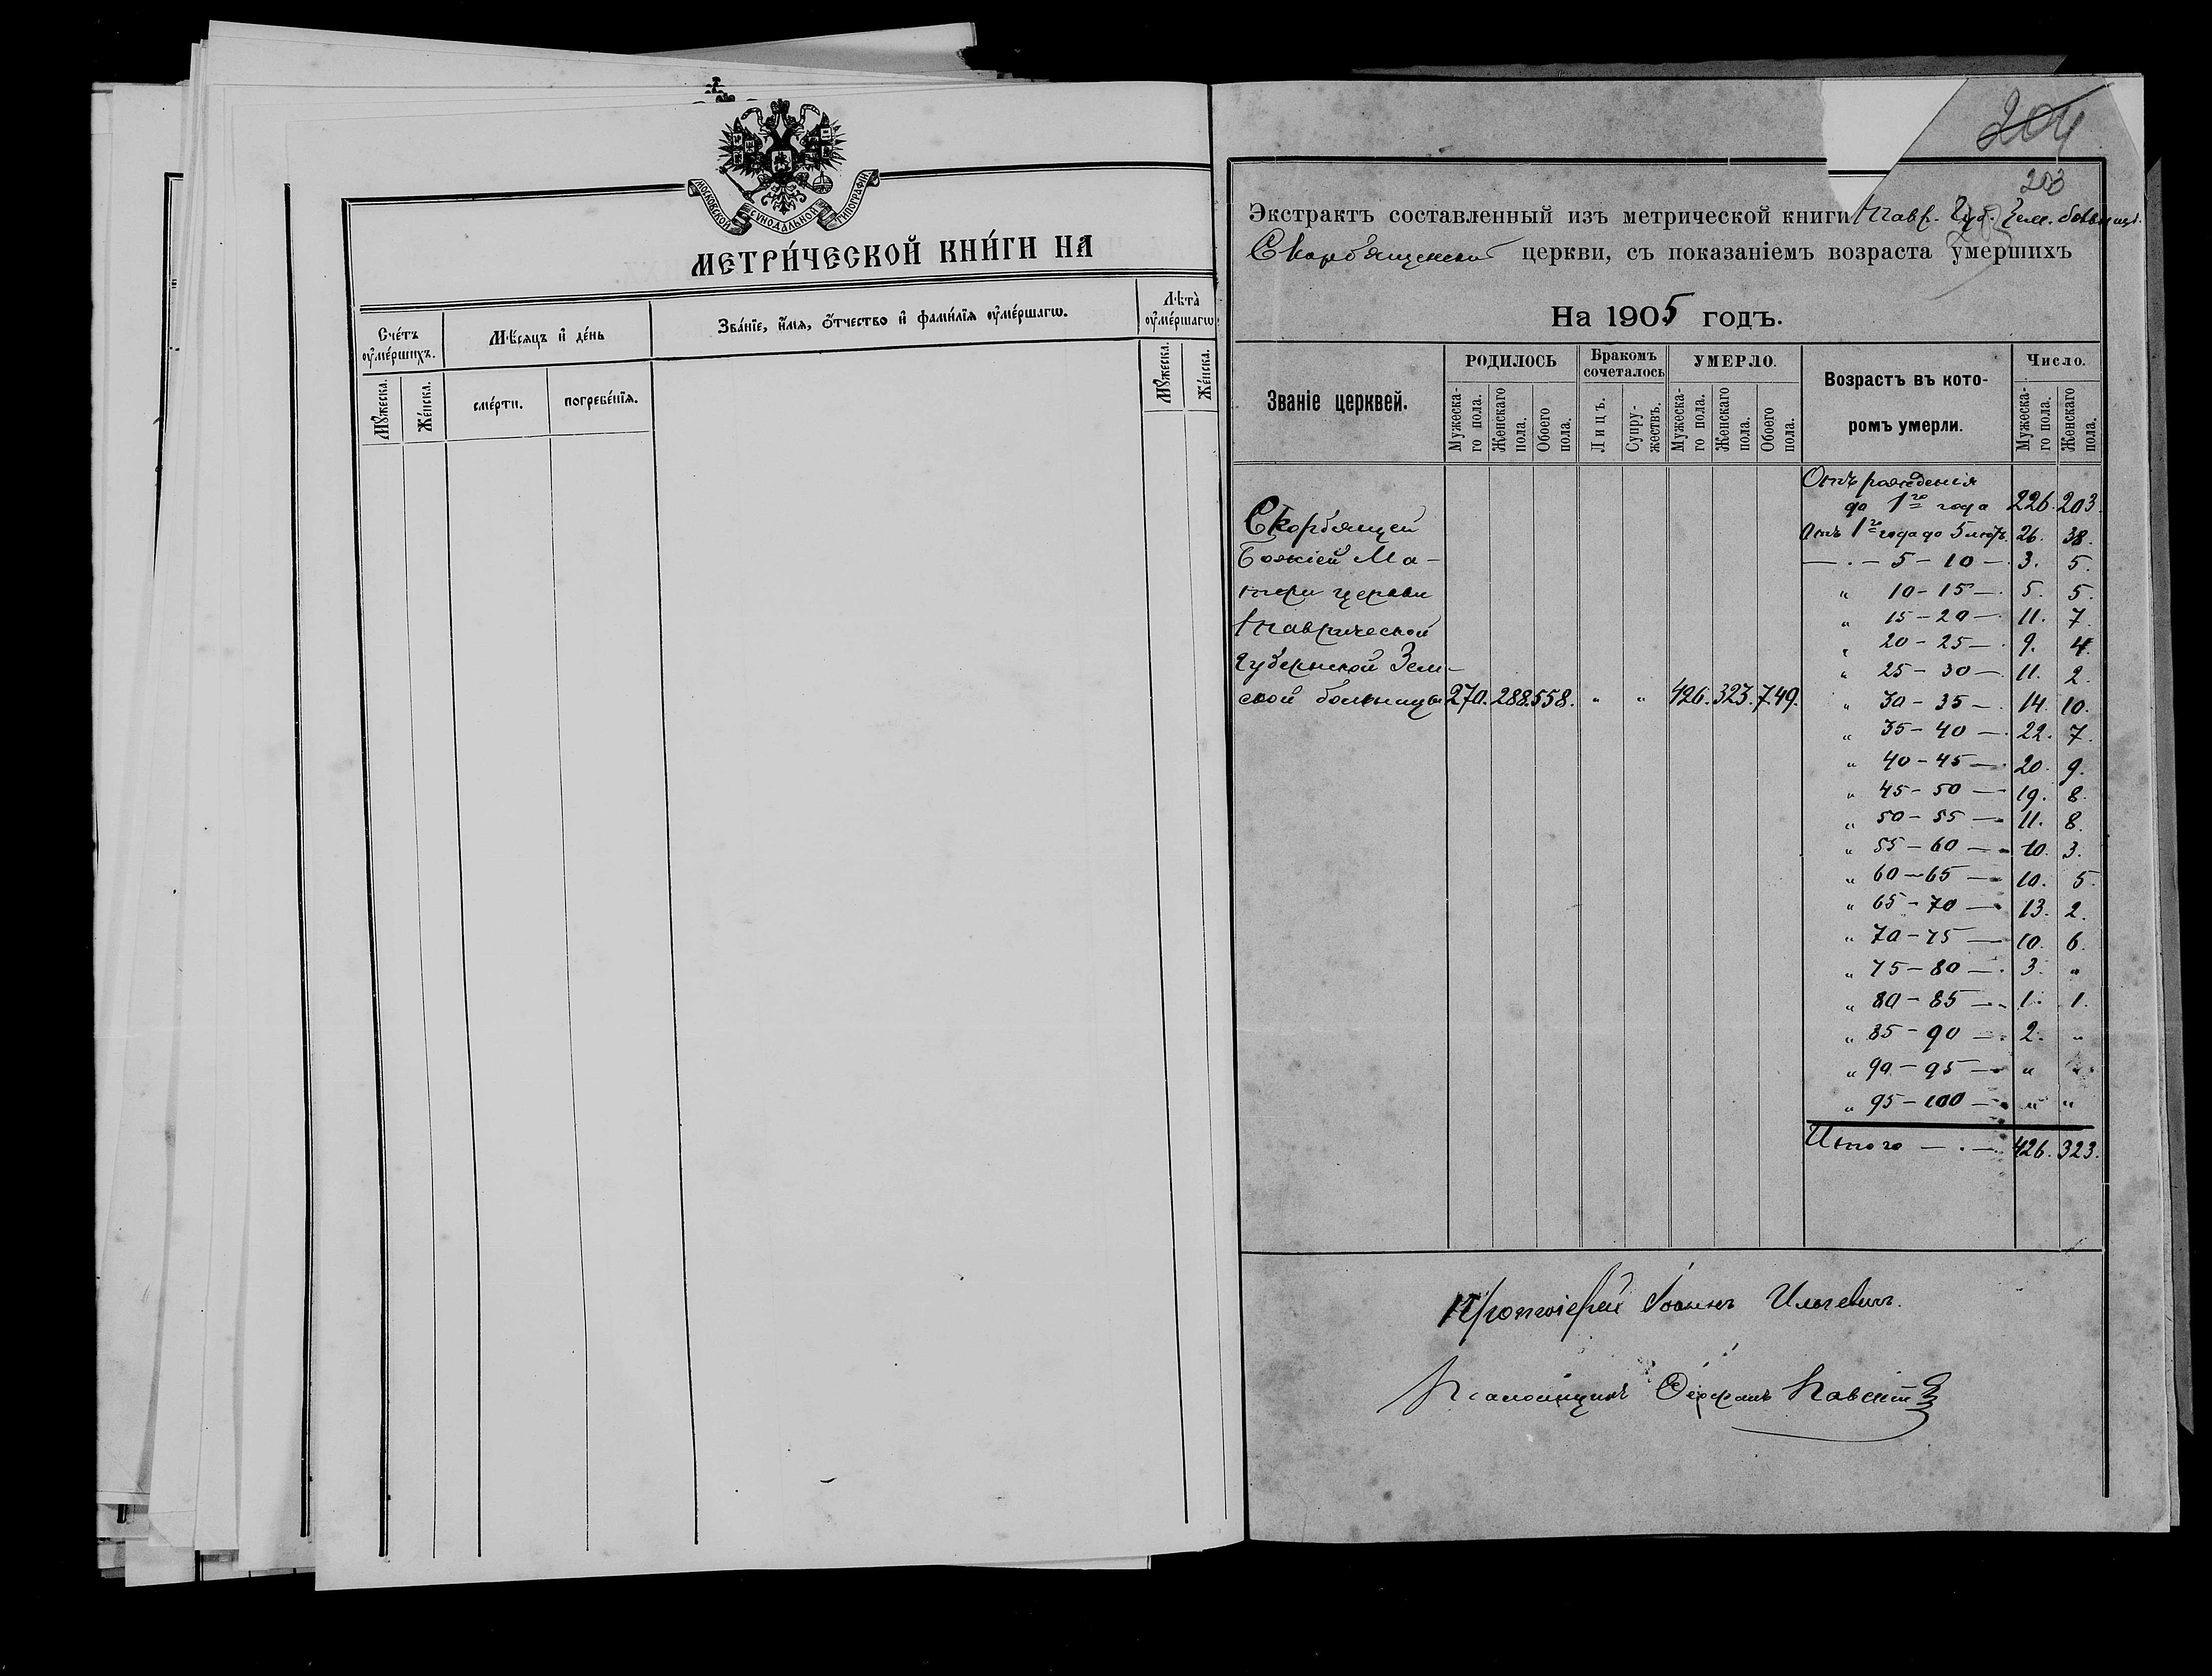 МОСКОВСКОЙ СѴНОДАЛЬНОЙ ТИПОГРАФІИ
МЕТРИ́ЧЕСКОЙ КНИ́ГИ НА
Сче́тъ оумершихъ.
Мѣсяцъ и де́нь
Зва́нїе, и́мѧ, о́тчество и фами́лїѧ оуме́ршагѡ.
Лѣта̀ оуме́ршагѡ
Мꙋжеска.
Же́нска.
сме́рти.
погребе́нїѧ.
Мꙋжеска.
Же́нска.
204
203
Экстрактъ составленный изъ метрической книги Тавр. Губ. Зем. больницы
Скорбященской церкви, съ показаніемъ возраста умершихъ
На 1905 годъ.
Званіе церквей.
РОДИЛОСЬ
Бракомъ сочеталось
УМЕРЛО.
Возрастъ въ которомъ умерли.
Число.
Мужеска-го пола.
Женскаго пола.
Обоего пола.
Лицъ.
Супру-жествъ.
Мужеска-го пола.
Женскаго пола.
Обоего пола.
Мужеска-го пола.
Женскаго пола.
Отъ рожденія
до 1го года 226. 203.
Скорбящей
Отъ 1го года до 5 лѣтъ. 26. 38.
Божіей Ма-
— . — 5 - 10 — 3. 5.
тери церкви
" 10 - 15 — 5. 5.
Таврической
" 15 - 20 — 11. 7.
" 20 - 25 — 9. 4.
Губернской Зем-
" 25 - 30 — 11. 2.
ской больницы 270. 288. 558. " " 426. 323. 749.
" 30 - 35 — 14. 10.
" 35 - 40 — 22. 7.
" 40 - 45 — 20. 9.
" 45 - 50 — 19. 8.
" 50 - 55 — 11. 8.
" 55 - 60 — 10. 3.
" 60 - 65 — 10. 5.
" 65 - 70 — 13. 2.
" 70 - 75 — 10. 6.
" 75 - 80 — 3. "
" 80 - 85 — 1. 1.
" 85 - 90 — 2. "
" 90 - 95 — " "
" 95 - 100 — " "
Итого — . — 426. 323.
Протоіерей Іоаннъ Ильчевичъ.
Псаломщикъ